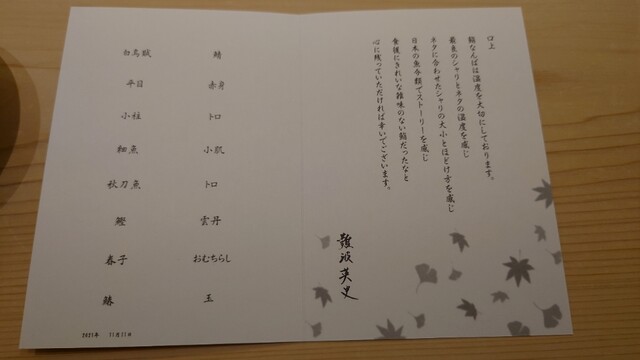 口上
鮨なんばは温度を大切にしております。
最良のシャリとネタの温度を感じ
ネタに合わせたシャリの大小とほどけ方を感じ
日本の魚介類でストーリーを感じ
食後にきれいな雑味のない鮨だったなと
心に残っていただければ幸いでございます。
難波英史
白烏賊
平目
小柱
細魚
秋刀魚
鰹
春子
鰆
鯖
赤身
トロ
小肌
トロ
雲丹
おむちらし
玉
2021年 11月11日